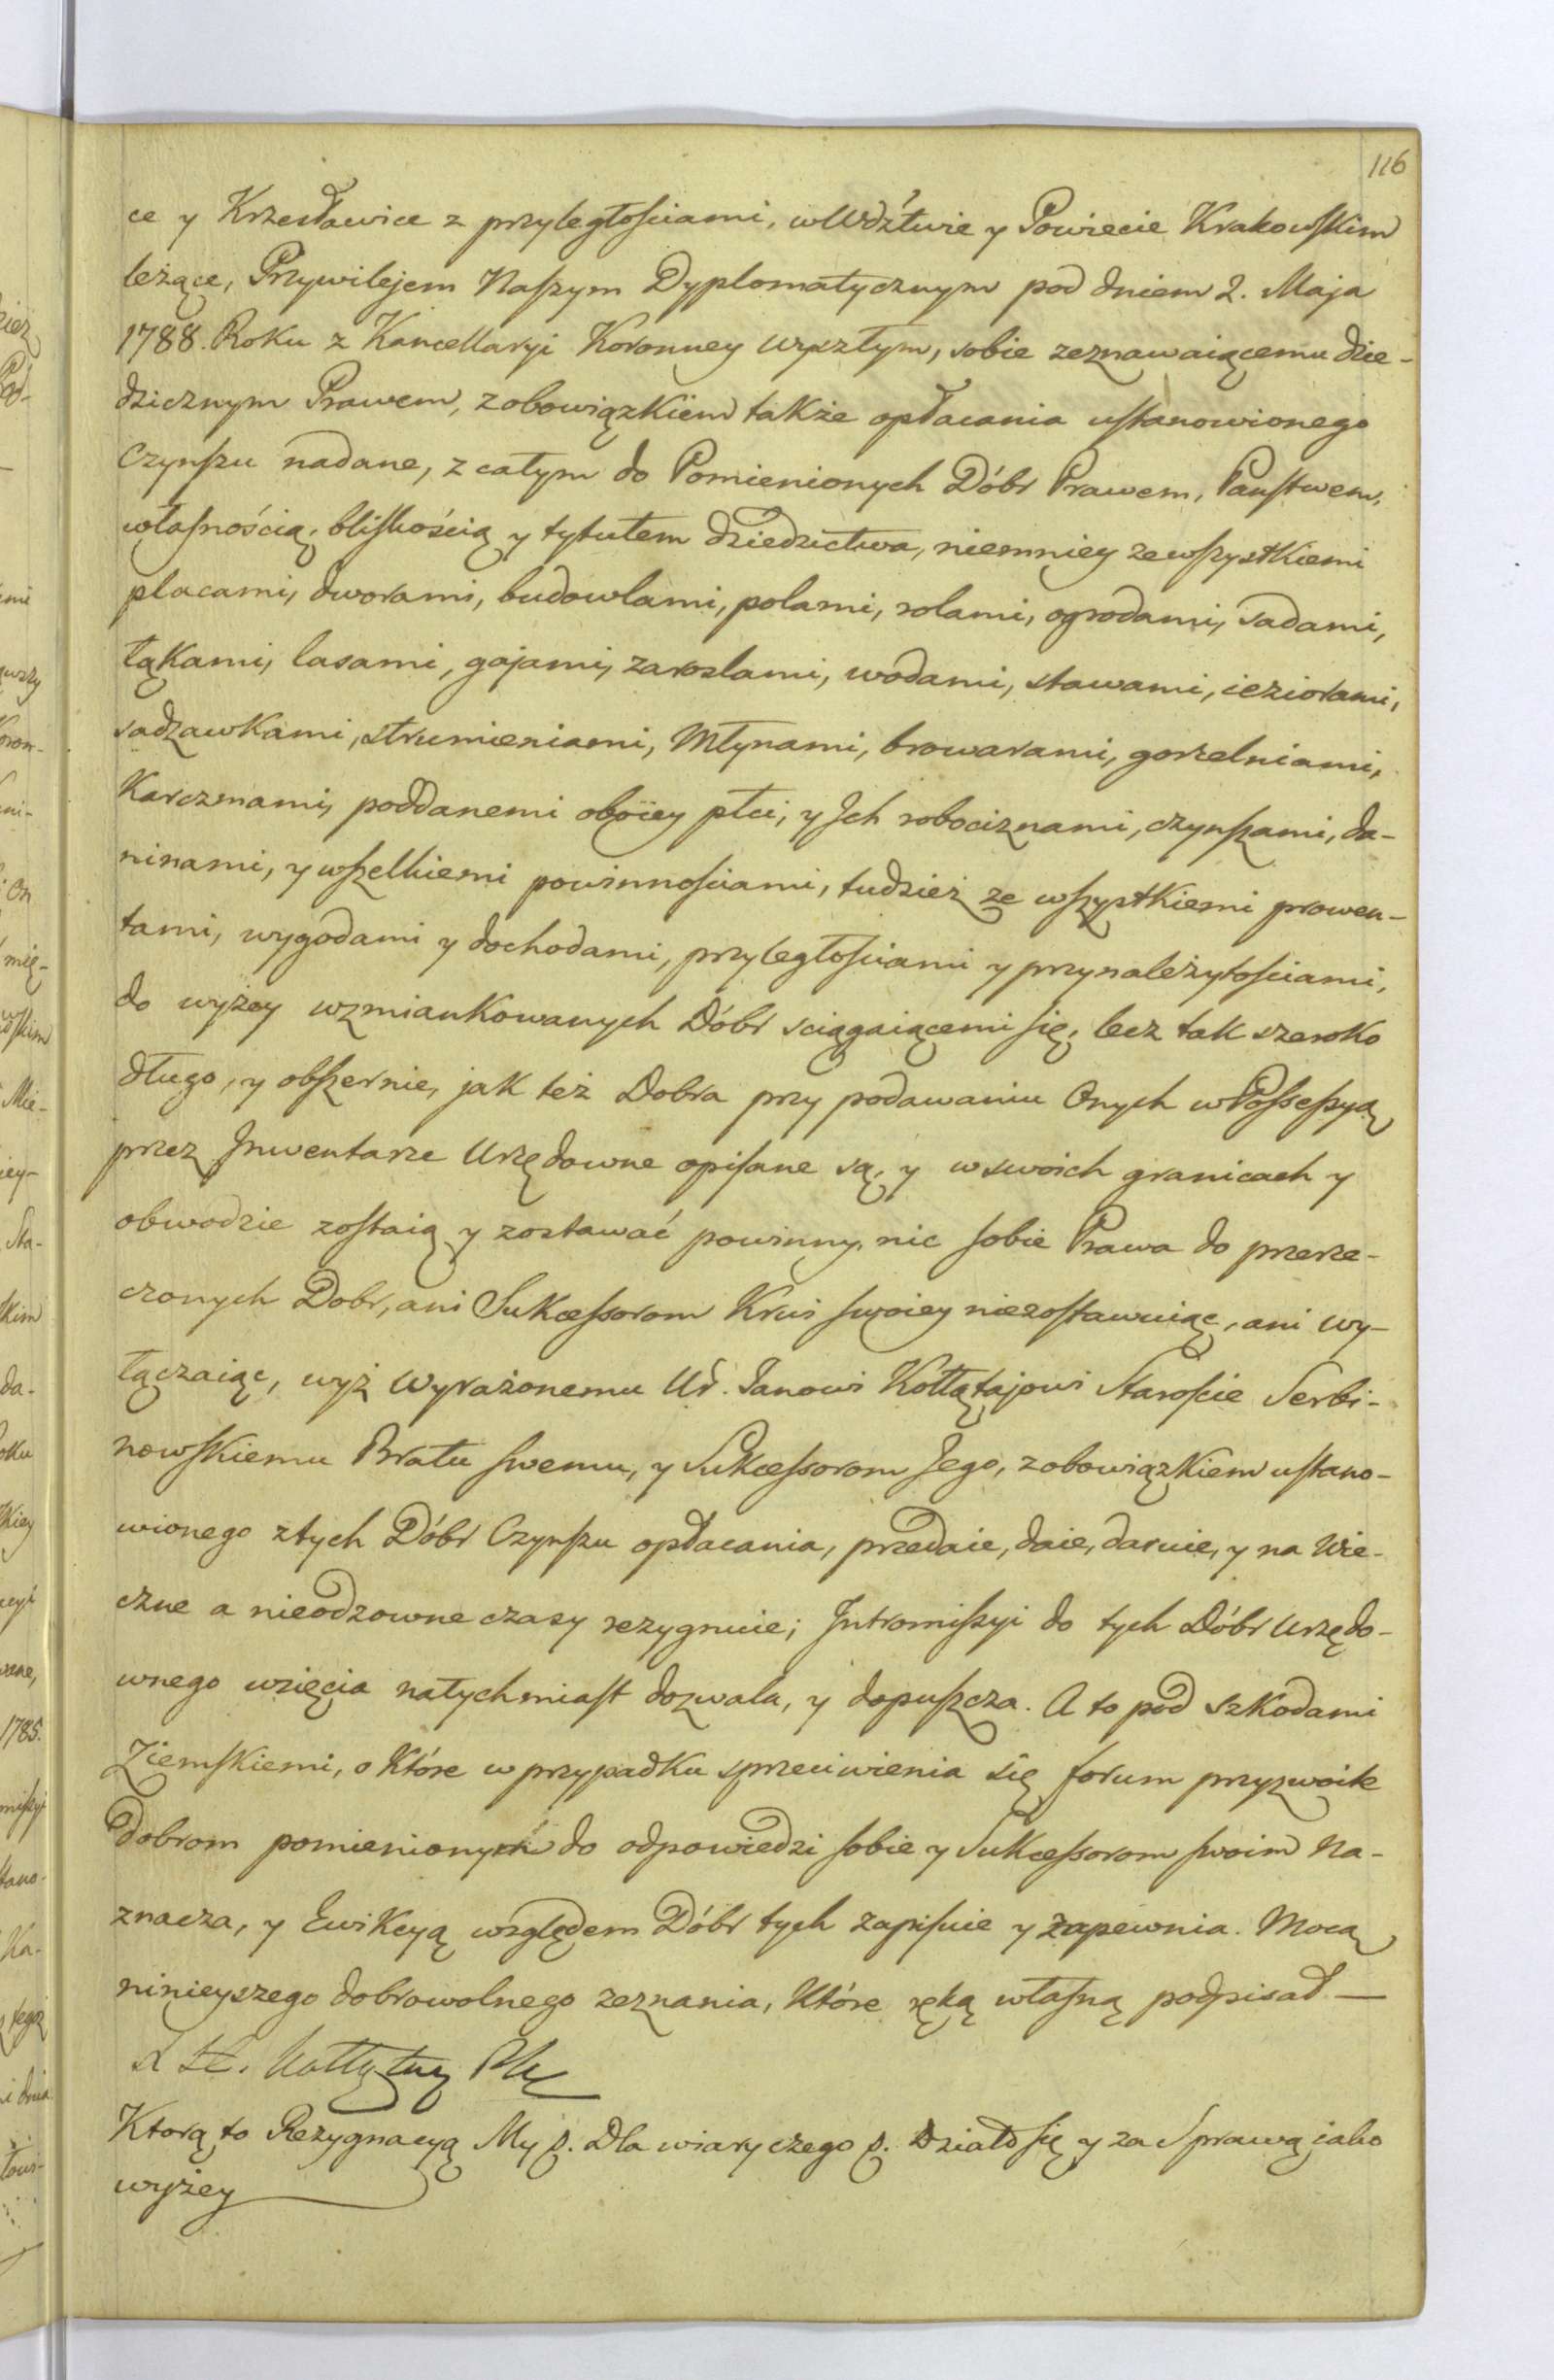 116
ce y Krzesławice z przyległościami, w Wdźtwie y Powiecie Krakowskim
leżące, Przywilejem Naszym Dyplomatycznym pod dniem 2. Maja
1788. Roku z Kancellaryi Koronney wyszłym, sobie zeznawaiącemu dzie-
dzicznym Prawem, z obowiązkiem także opłacania ustanowionego
Czynszu nadane, z całym do Pomienionych Dóbr Prawem, Państwem,
własnością, bliskością y tytułem dziedzictwa, niemniey ze wszystkiemi
placami, dworami, budowlami, polami, rolami, ogrodami, sadami,
łąkami, lasami, gajami, zaroslami, wodami, stawami, ieziorami,
sadzawkami, strumieniami, Młynami, browarami, gorzelniami,
Karczmami, poddanemi oboiey płci, y Ich robociznami, czynszami, da-
ninami, y wszelkiemi powinnościami, tudzież ze wszystkiemi prowen-
tami, wygodami y dochodami, przyległościami y przynależytościami,
do wyżey wzmiankowanych Dóbr sciągaiącemi się, lecz tak szeroko
długo, y obszernie, jak też Dobra przy podawaniu Onych w Possessyą
przez Inwentarze Urzędowne opisane są, y w swoich granicach y
obwodzie zostaią y zostawać powinny, nic sobie Prawa do przerze-
czonych Dobr, ani Sukcessorom Krwi swoiey niezostawuiąc, ani wy-
łączaiąc, wyż wyrażonemu Ur. Janowi Kołłątajowi Staroście Serbi-
nowskiemu Bratu swemu, y Sukcessorom Jego, z obowiązkiem ustano-
wionego z tych Dóbr Czynszu opłacania, przedaie, daie, daruie, y na Wie-
czne a nieodzowne czasy rezygnuie; Intromissyi do tych Dóbr Urzędo-
wnego wzięcia natychmiast dozwala, y dopuszcza. A to pod szkodami
Ziemskiemi, o które w przypadku sprzeciwienia się forum przyzwoite
Dobrom pomienionych do odpowiedzi sobie y Sukcessorom swoim Na-
znacza, y Ewikcyą względem Dóbr tych zapisuie y zapewnia. Mocą
ninieyszego dobrowolnego zeznania, które ręką własną podpisał —
X H. Kołłątay
Ktorą to Rezygnacyą My p. Dla wiary czego p. Działo się y za Sprawą iako
wyżey